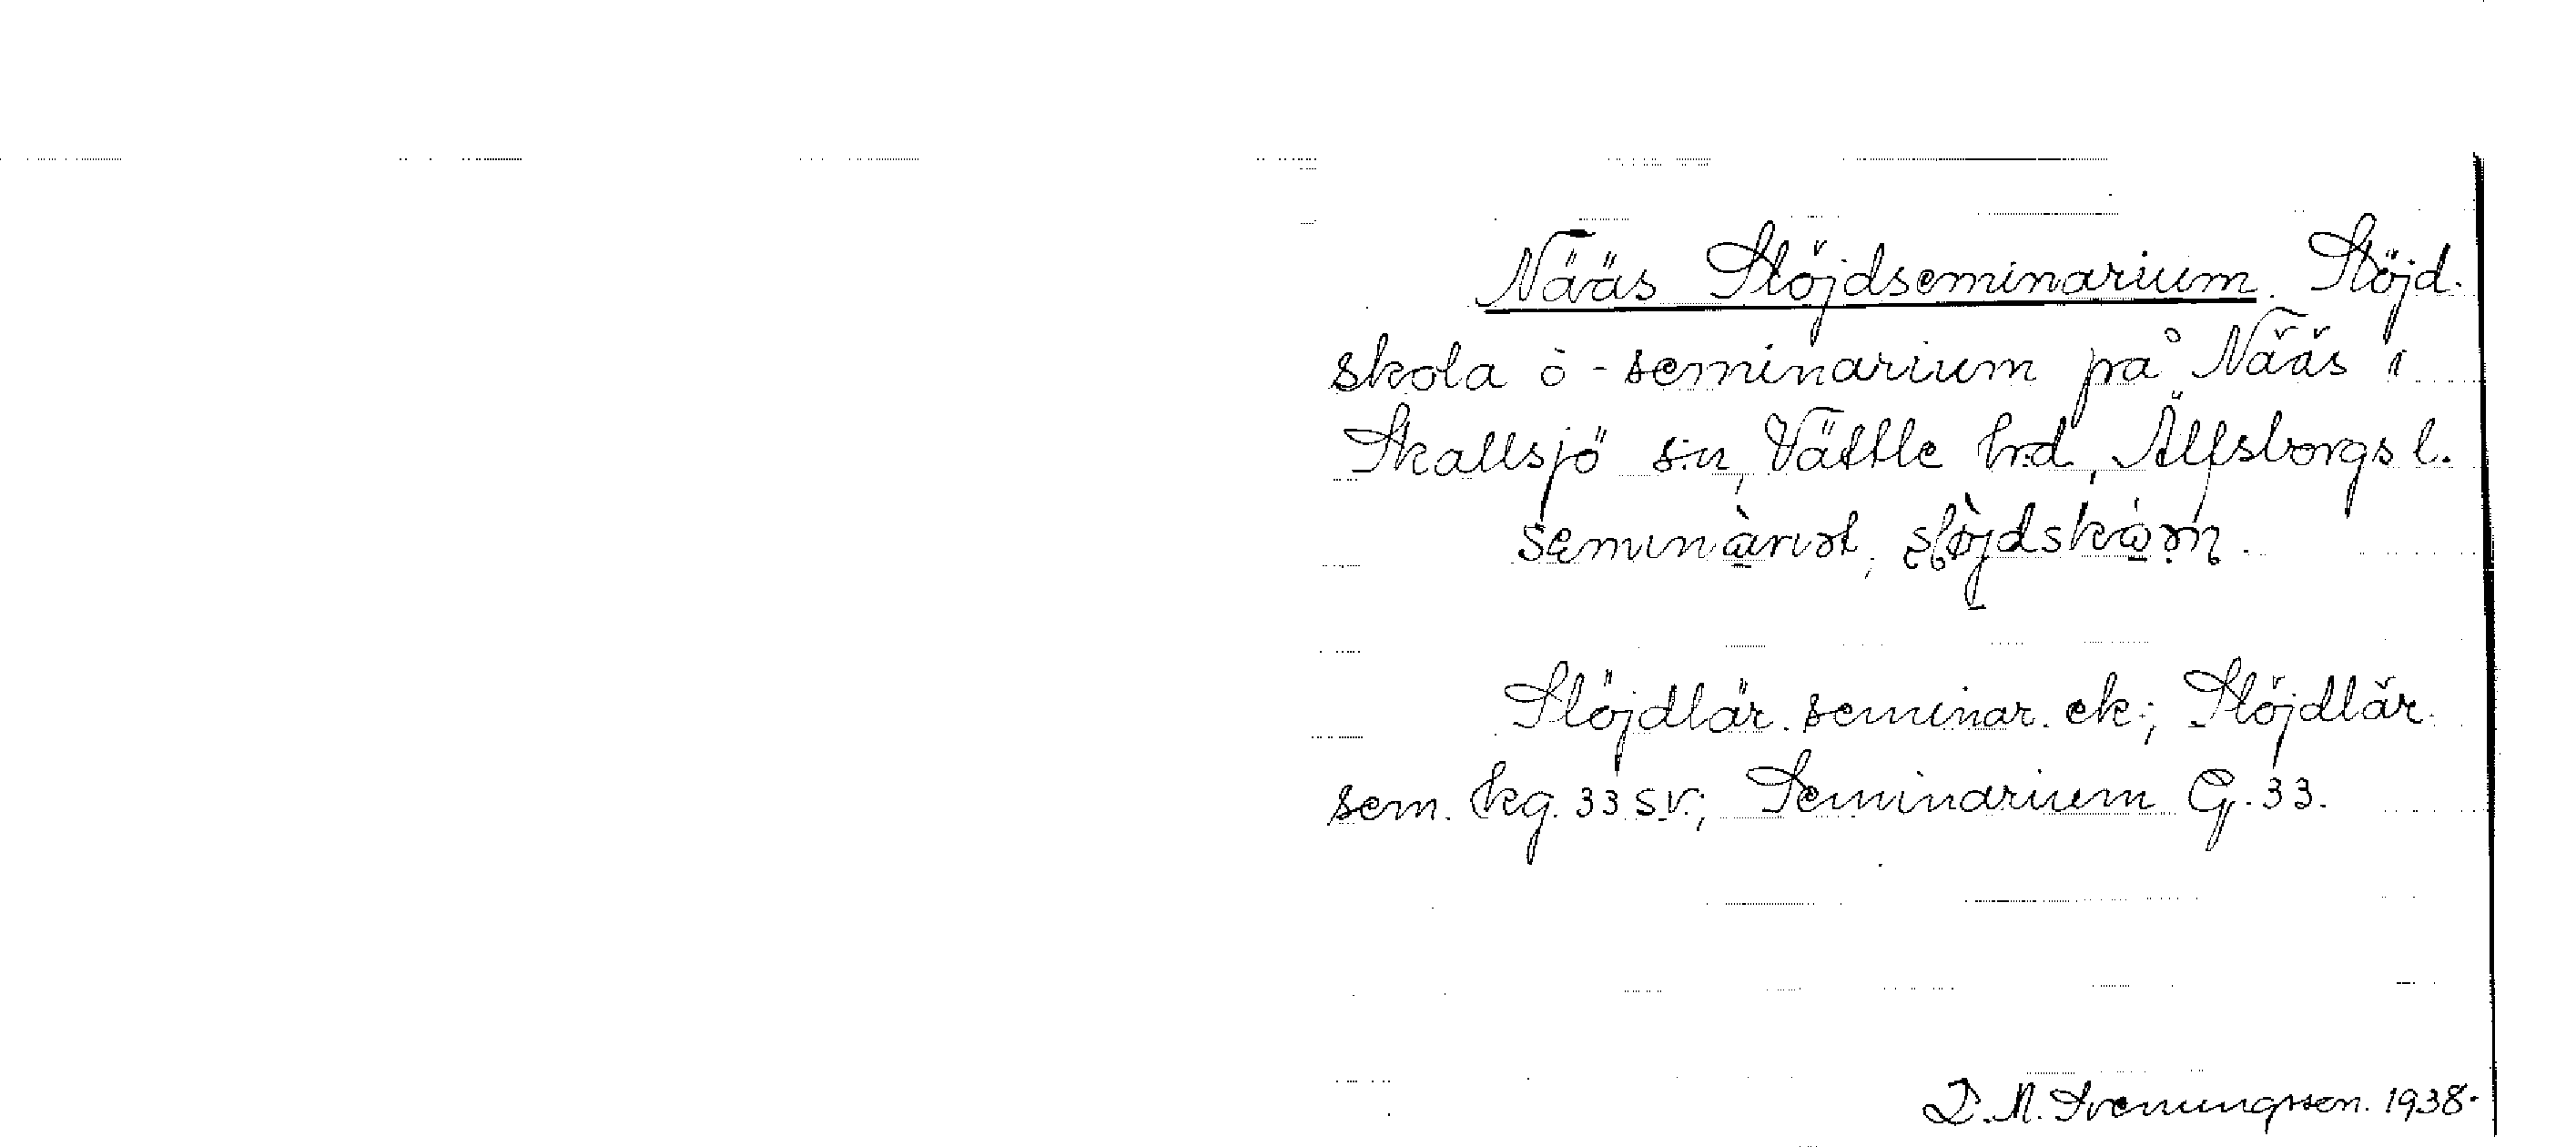 Nääs Slöjdseminarium. Slöjd-
skola o -seminarium på Nääs i
Skallsjö s:n, Vättle hrd, Älfsborgs l.
seminàriət, sløjdskòm.
Slöjdlär. seminar. ek.; Slöjdlär.
sem. kg. 33 SV.; Seminarium G. 33.
D. N. Svenungsson. 1938.